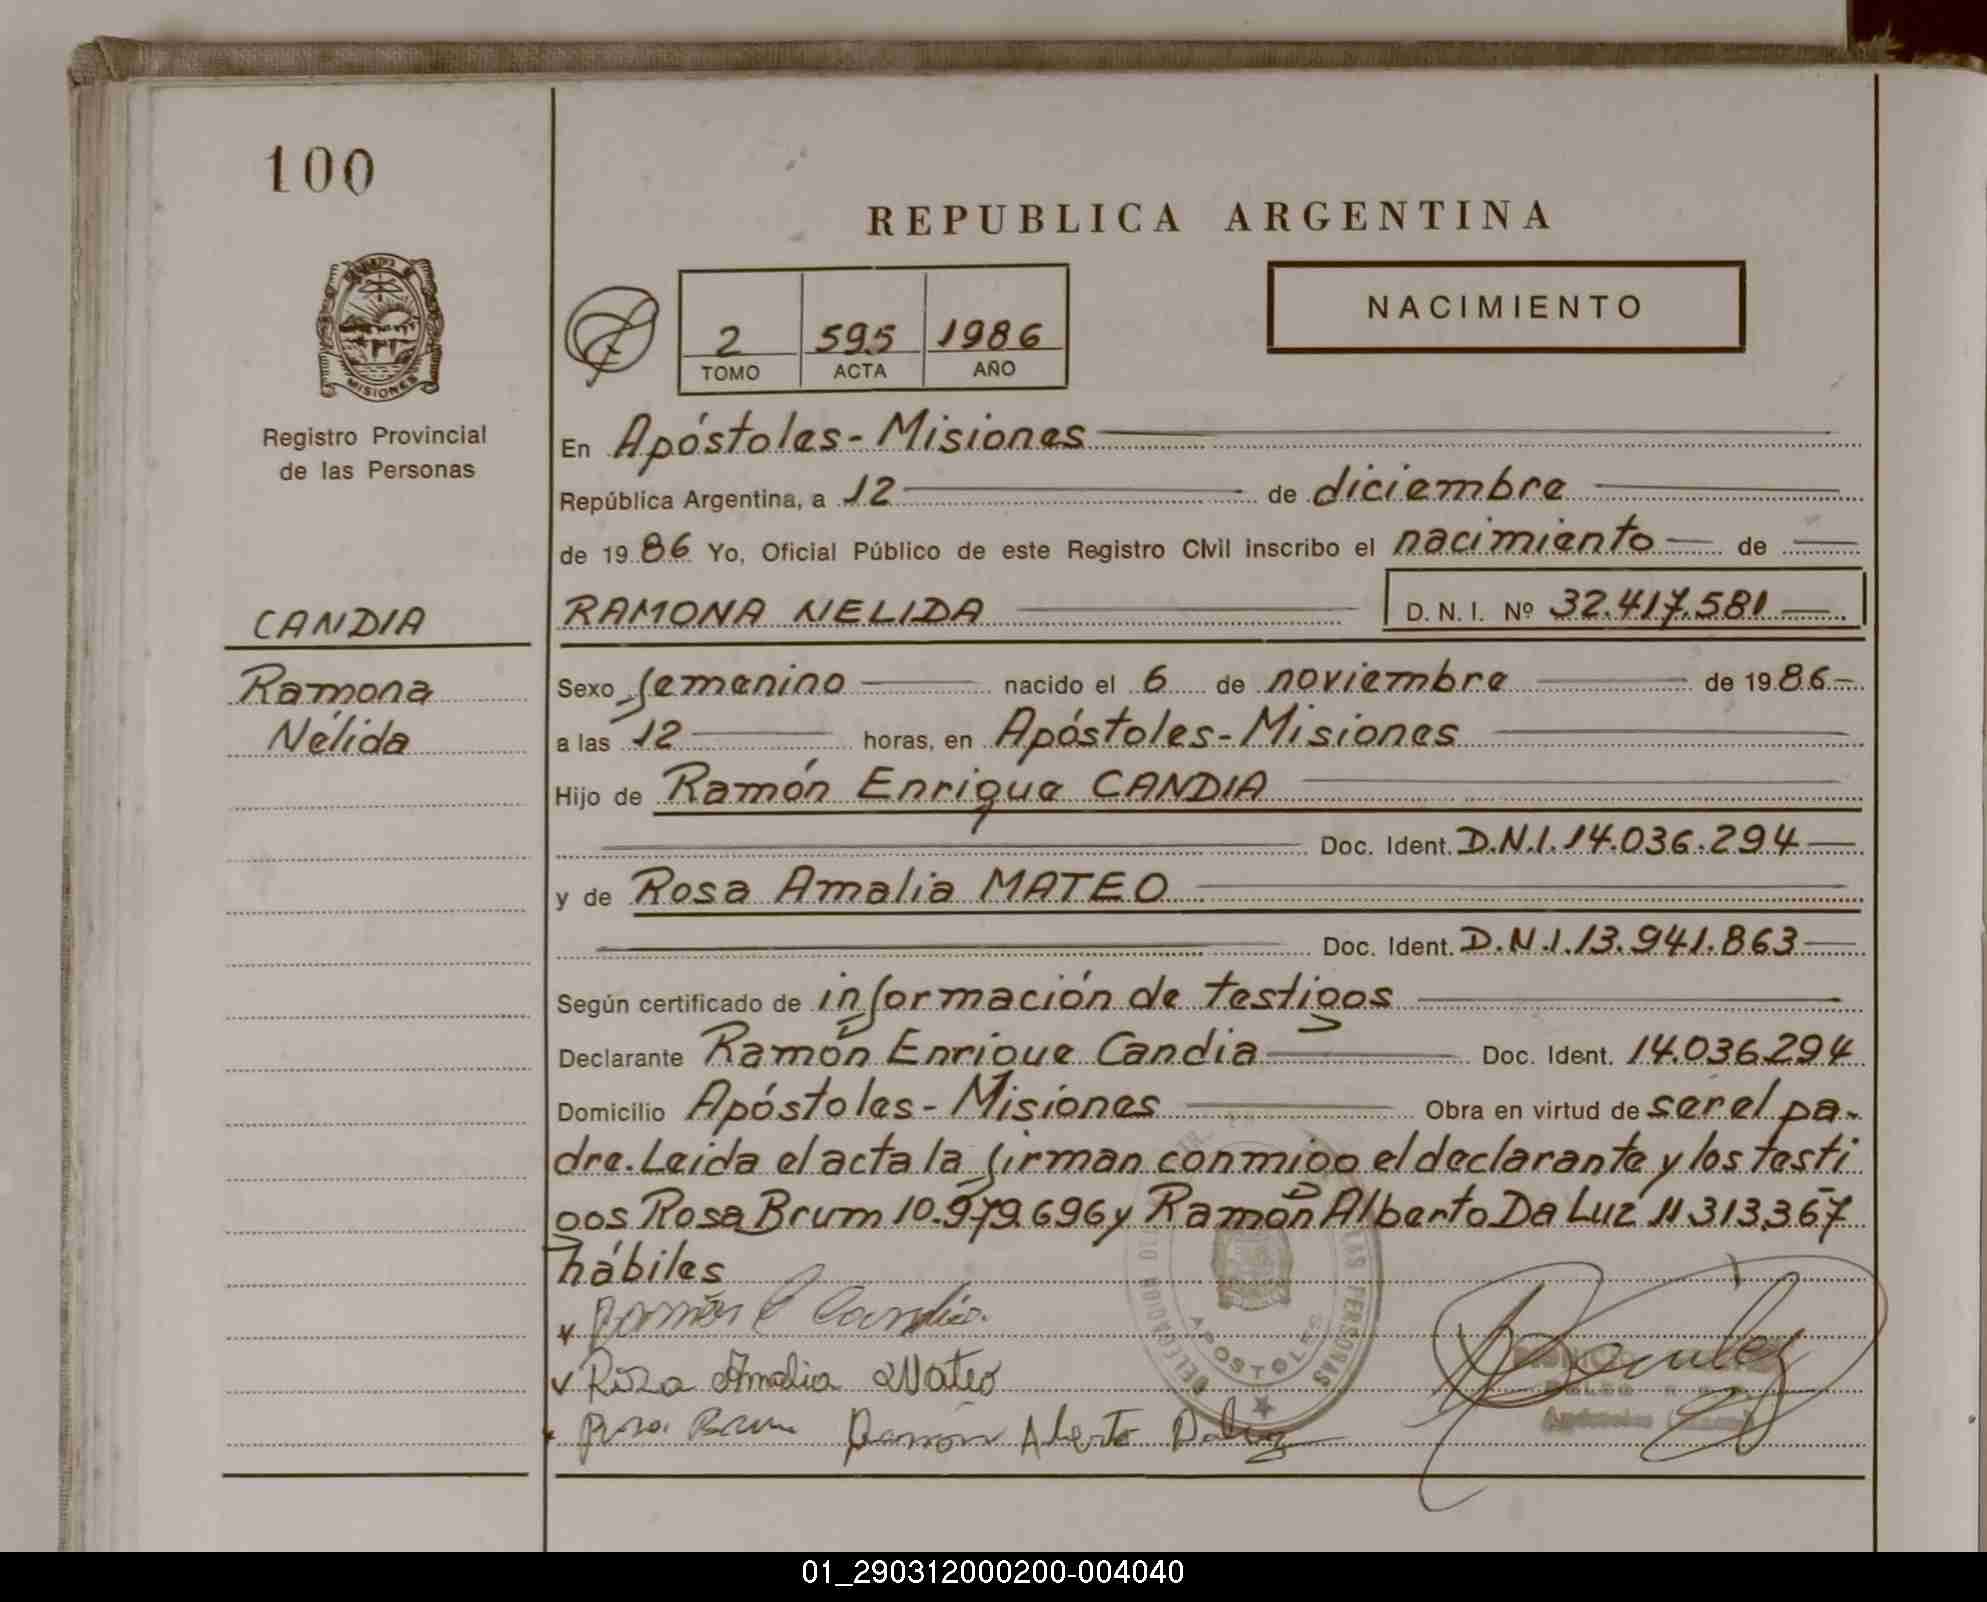 100
REPUBLICA ARGENTINA
NACIMIENTO
2 595 1986
TOMO ACTA AÑO
MISIONES
Registro Provincial
de las Personas
En Apóstoles-Misiones
República Argentina, a 12 de diciembre
de 1986 Yo, Oficial Público de este Registro Civil inscribo el nacimiento de
CANDIA
RAMONA NELIDA D.N.I. Nº 32.417.581
Ramona
Nélida
Sexo femenino nacido el 6 de noviembre de 1986
a las 12 horas, en Apóstoles-Misiones
Hijo de Ramón Enrique CANDIA
Doc. Ident. D.N.I. 14.036.294
y de Rosa Amalia MATEO
Doc. Ident. D.N.I. 13.941.863
Según certificado de información de testigos
Declarante Ramón Enrique Candia Doc. Ident. 14.036.294
Domicilio Apóstoles-Misiones Obra en virtud de ser el pa-
dre. Leida el acta la firman conmigo el declarante y los testi
gos Rosa Brum 10.979.696 y Ramón Alberto Da Luz 11.313.367
hábiles
Ramón E Candia.
Rosa Amalia Mateo
Rosa Brum Ramón Alberto Daluz
DELEGACION DE LAS PERSONAS
APOSTOLES
01_290312000200-004040